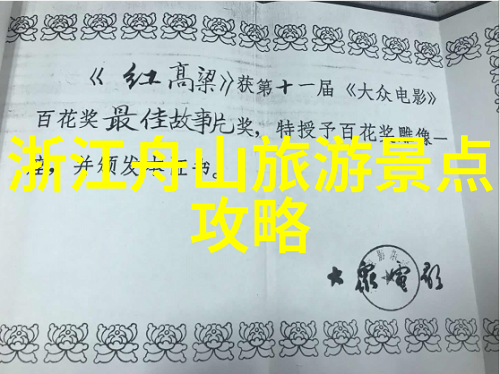 《红高粱》获第十一届《大众电影》
百花奖最佳故事片奖，特授予百花奖雕像一
座，并颁发本证书。
浙江舟山旅游景点
攻略
大衆電影